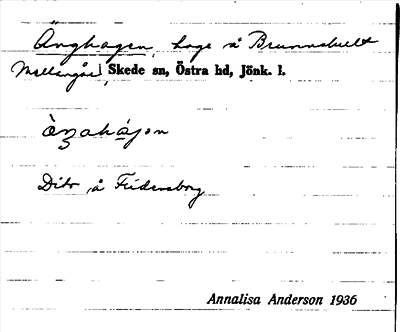 Änghagen, hage å Brunnshult
Mellangård, Skede sn, Östra hd, Jönk. l.
Dito å Fridensborg
Annalisa Anderson 1936